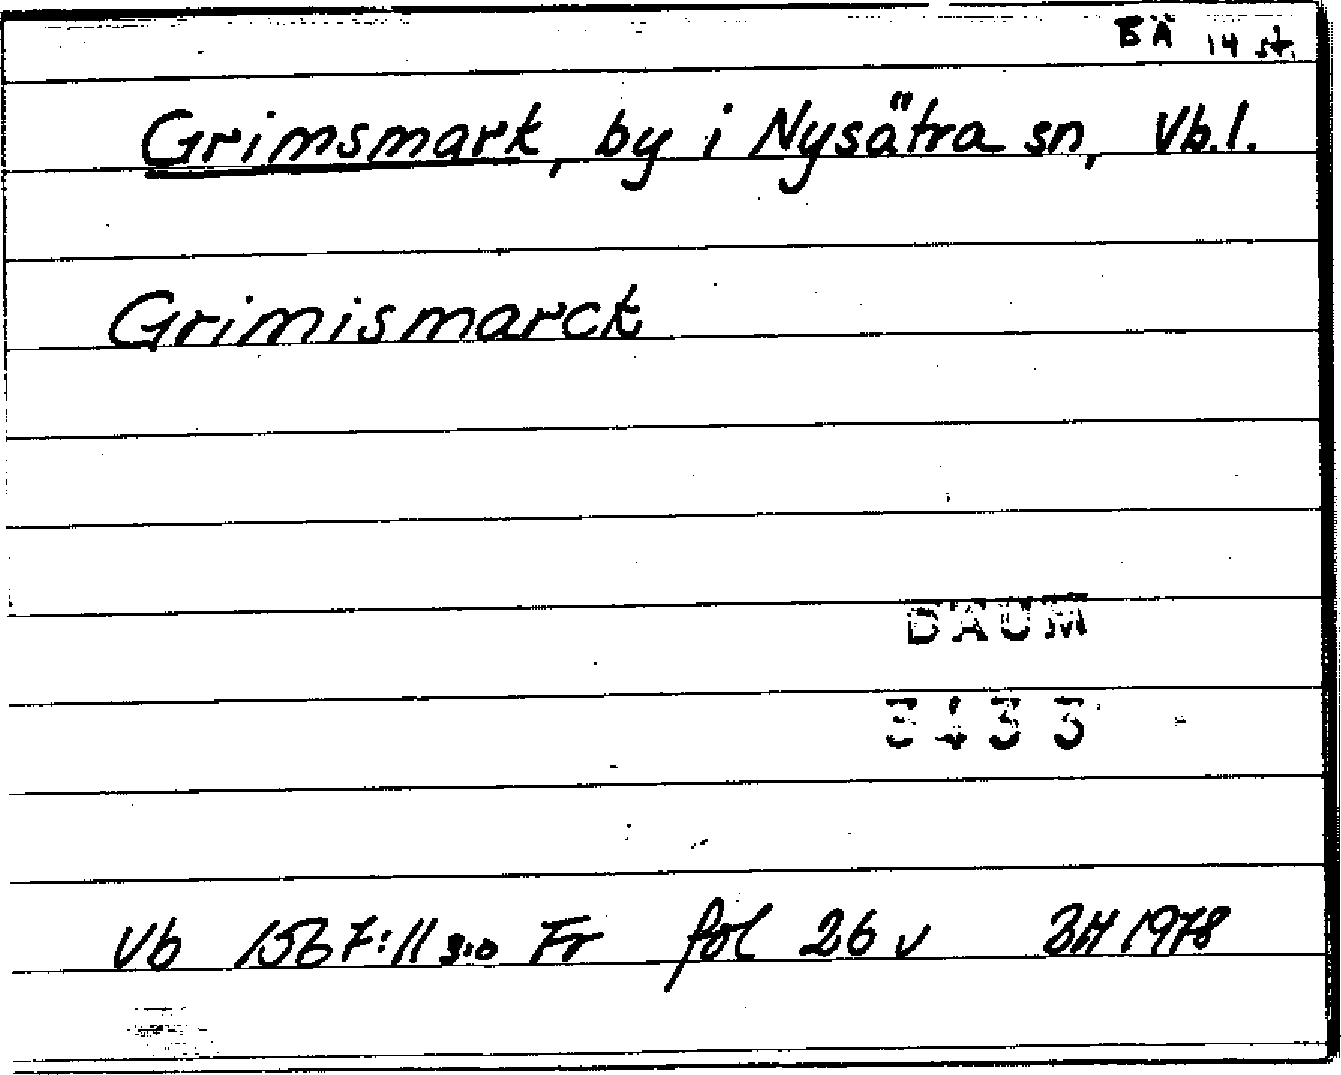 BÄ 14 st.
Grimsmark, by i Nysätra sn, Vb.l.
Grimismarck
DAUM
3433
Vb 1567:11 s:o Fr fol 26 v BH 1978